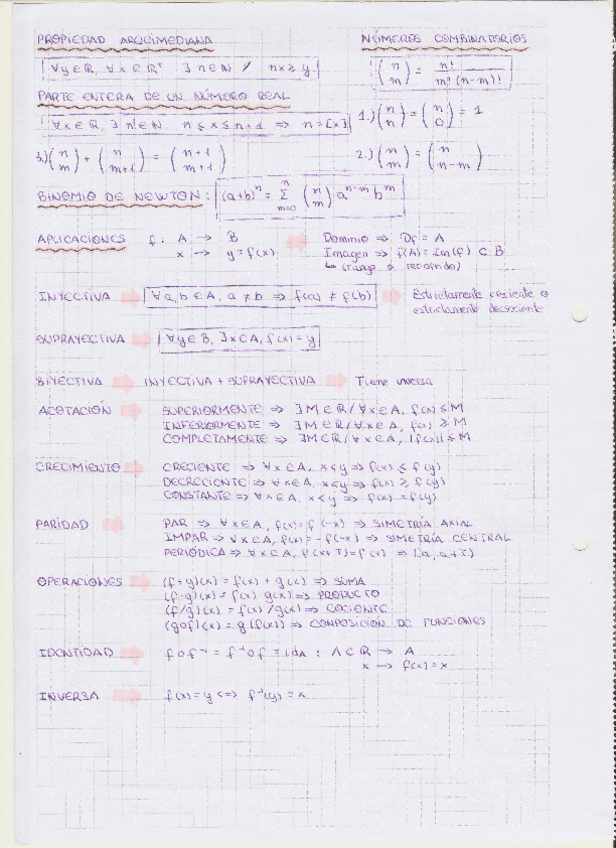 PROPIEDAD ARQUIMEDIANA
∀y∈ℝ, ∀x∈ℝ⁺ ∃n∈ℕ / nx ≥ y
PARTE ENTERA DE UN NÚMERO REAL
∀x∈ℝ, ∃n∈ℕ, n ≤ x ≤ n+1 ⇒ n = [x]
NÚMEROS COMBINATORIOS
(n m) = n! / m!(n-m)!
1.) (n n) = (n 0) = 1
3.) (n m) + (n m+1) = (n+1 m+1)
2.) (n m) = (n n-m)
BINOMIO DE NEWTON: (a+b)ⁿ = Σ (n m) aⁿ⁻ᵐ bᵐ
APLICACIONES f: A → B
x → y = f(x)
Dominio ⇒ Df = A
Imagen ⇒ f(A) = Im(f) ⊂ B
↳ (rango o recorrido)
INYECTIVA ∀a,b∈A, a ≠ b ⇒ f(a) ≠ f(b) Estrictamente creciente o
estrictamente decreciente
SUPRAYECTIVA ∀y∈B, ∃x∈A, f(x) = y
BIYECTIVA INYECTIVA + SUPRAYECTIVA Tiene inversa
ACOTACIÓN SUPERIORMENTE ⇒ ∃M∈ℝ/∀x∈A, f(x) ≤ M
INFERIORMENTE ⇒ ∃M∈ℝ/∀x∈A, f(x) ≥ M
COMPLETAMENTE ⇒ ∃M∈ℝ/∀x∈A, |f(x)| ≤ M
CRECIMIENTO CRECIENTE ⇒ ∀x∈A, x<y ⇒ f(x) ≤ f(y)
DECRECIENTE ⇒ ∀x∈A, x<y ⇒ f(x) ≥ f(y)
CONSTANTE ⇒ ∀x∈A, x<y ⇒ f(x) = f(y)
PARIDAD PAR ⇒ ∀x∈A, f(x) = f(-x) ⇒ SIMETRÍA AXIAL
IMPAR ⇒ ∀x∈A, f(x) = -f(-x) ⇒ SIMETRÍA CENTRAL
PERIÓDICA ⇒ ∀x∈A, f(x+T) = f(x) ⇒ [a, a+T)
OPERACIONES (f+g)(x) = f(x) + g(x) ⇒ SUMA
(f·g)(x) = f(x)·g(x) ⇒ PRODUCTO
(f/g)(x) = f(x)/g(x) ⇒ COCIENTE
(g∘f)(x) = g(f(x)) ⇒ COMPOSICIÓN DE FUNCIONES
IDENTIDAD f∘f⁻¹ = f⁻¹∘f = idA : A⊂ℝ → A
x → f(x) = x
INVERSA f(x) = y ⟺ f⁻¹(y) = x